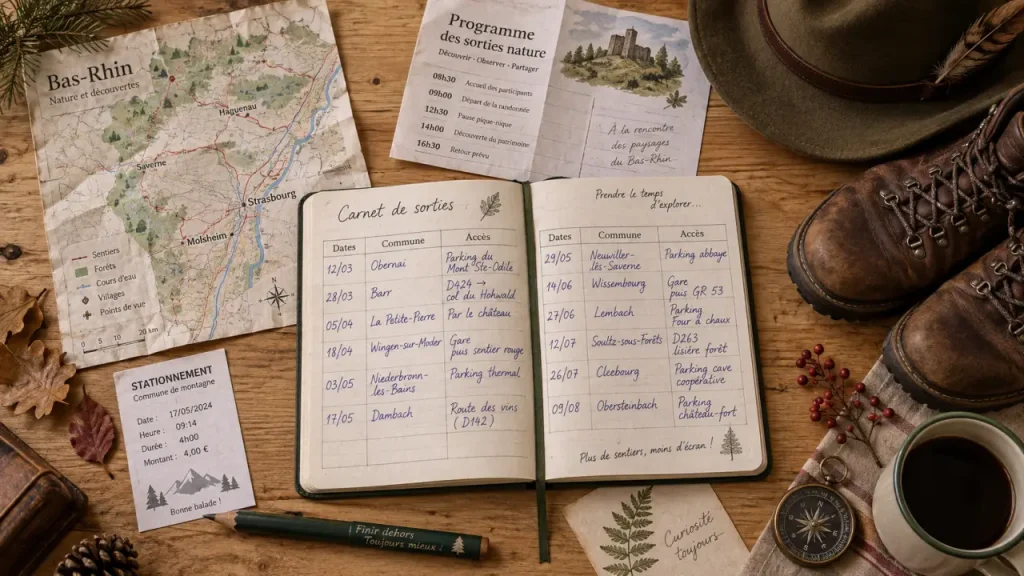 Bas-Rhin
Nature et découvertes
Haguenau
Saverne
Strasbourg
Molsheim
Sentiers
Forêts
Cours d'eau
Villages
Points de vue
0 5 10 20 km
Programme
des sorties nature
Découvrir - Observer - Partager
08h30 Accueil des participants
09h00 Départ de la randonnée
12h30 Pause pique-nique
14h00 Découverte du patrimoine
16h30 Retour prévu
À la rencontre
des paysages
du Bas-Rhin
Carnet de sorties
Dates Commune Accès
12/03 Obernai Parking du
Mont Ste-Odile
28/03 Barr D424 →
col du Hohwald
05/04 La Petite-Pierre Par le château
18/04 Wingen-sur-Moder Gare
puis sentier rouge
03/05 Niederbronn-
les-Bains Parking thermal
17/05 Dambach Route des vins
(D142)
Prendre le temps
d'explorer...
Dates Commune Accès
29/05 Neuwiller-
lès-Saverne Parking abbaye
14/06 Wissembourg Gare
puis GR 53
27/06 Lembach Parking
Four à chaux
12/07 Soultz-sous-Forêts D263
lisière forêt
26/07 Cleebourg Parking cave
coopérative
09/08 Obersteinbach Parking
château-fort
Plus de sentiers, moins d'écran !
STATIONNEMENT
Commune de montagne
Date : 17/05/2024
Heure : 09:14
Durée : 4h00
Montant : 4,00 €
Bonne balade !
Finir dehors
Toujours mieux !
Curiosité
toujours